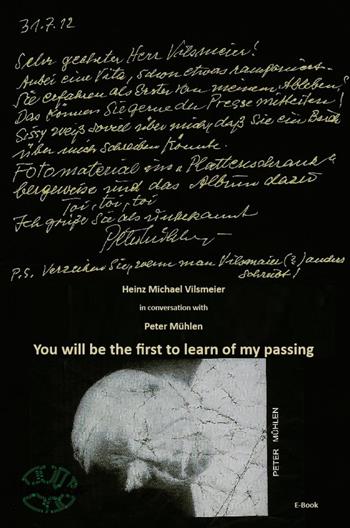 31.7.12
Sehr geehrter Herr Vilsmeier!
Anbei eine Vita, schon etwas ramponiert.
Sie erfahren als Erster von meinem Ableben.
Das können Sie gerne der Presse mitteilen!
Sissy weiß soviel über mich, daß Sie ein Buch
über mich schreiben könnte.
Fotomaterial im "Plattenschrank"
bergeweise und das Album dazu
Toi, toi, toi
Ich grüße Sie als unbekannt
P.S. Verzeihen Sie, wenn man Vilsmaier (?) anders
schreibt!
Heinz Michael Vilsmeier
in conversation with
Peter Mühlen
You will be the first to learn of my passing
PETER MÜHLEN
E-Book